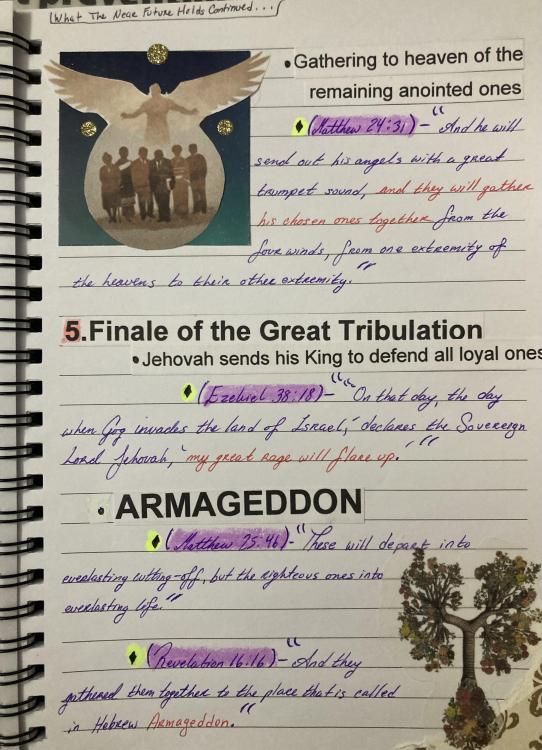 What The Near Future Holds Continued...
• Gathering to heaven of the
remaining anointed ones
(Matthew 24:31) - "And he will
send out his angels with a great
trumpet sound, and they will gather
his chosen ones together from the
four winds, from one extremity of
the heavens to their other extremity."
5.Finale of the Great Tribulation
•Jehovah sends his King to defend all loyal ones
(Ezekiel 38:18) - "'On that day, the day
when Gog invades the land of Israel,' declares the Sovereign
Lord Jehovah, 'my great rage will flare up.'"
• ARMAGEDDON
(Matthew 25:46) - "These will depart into
everlasting cutting-off, but the righteous ones into
everlasting life."
(Revelation 16:16) - "And they
gathered them together to the place that is called
in Hebrew Armageddon."